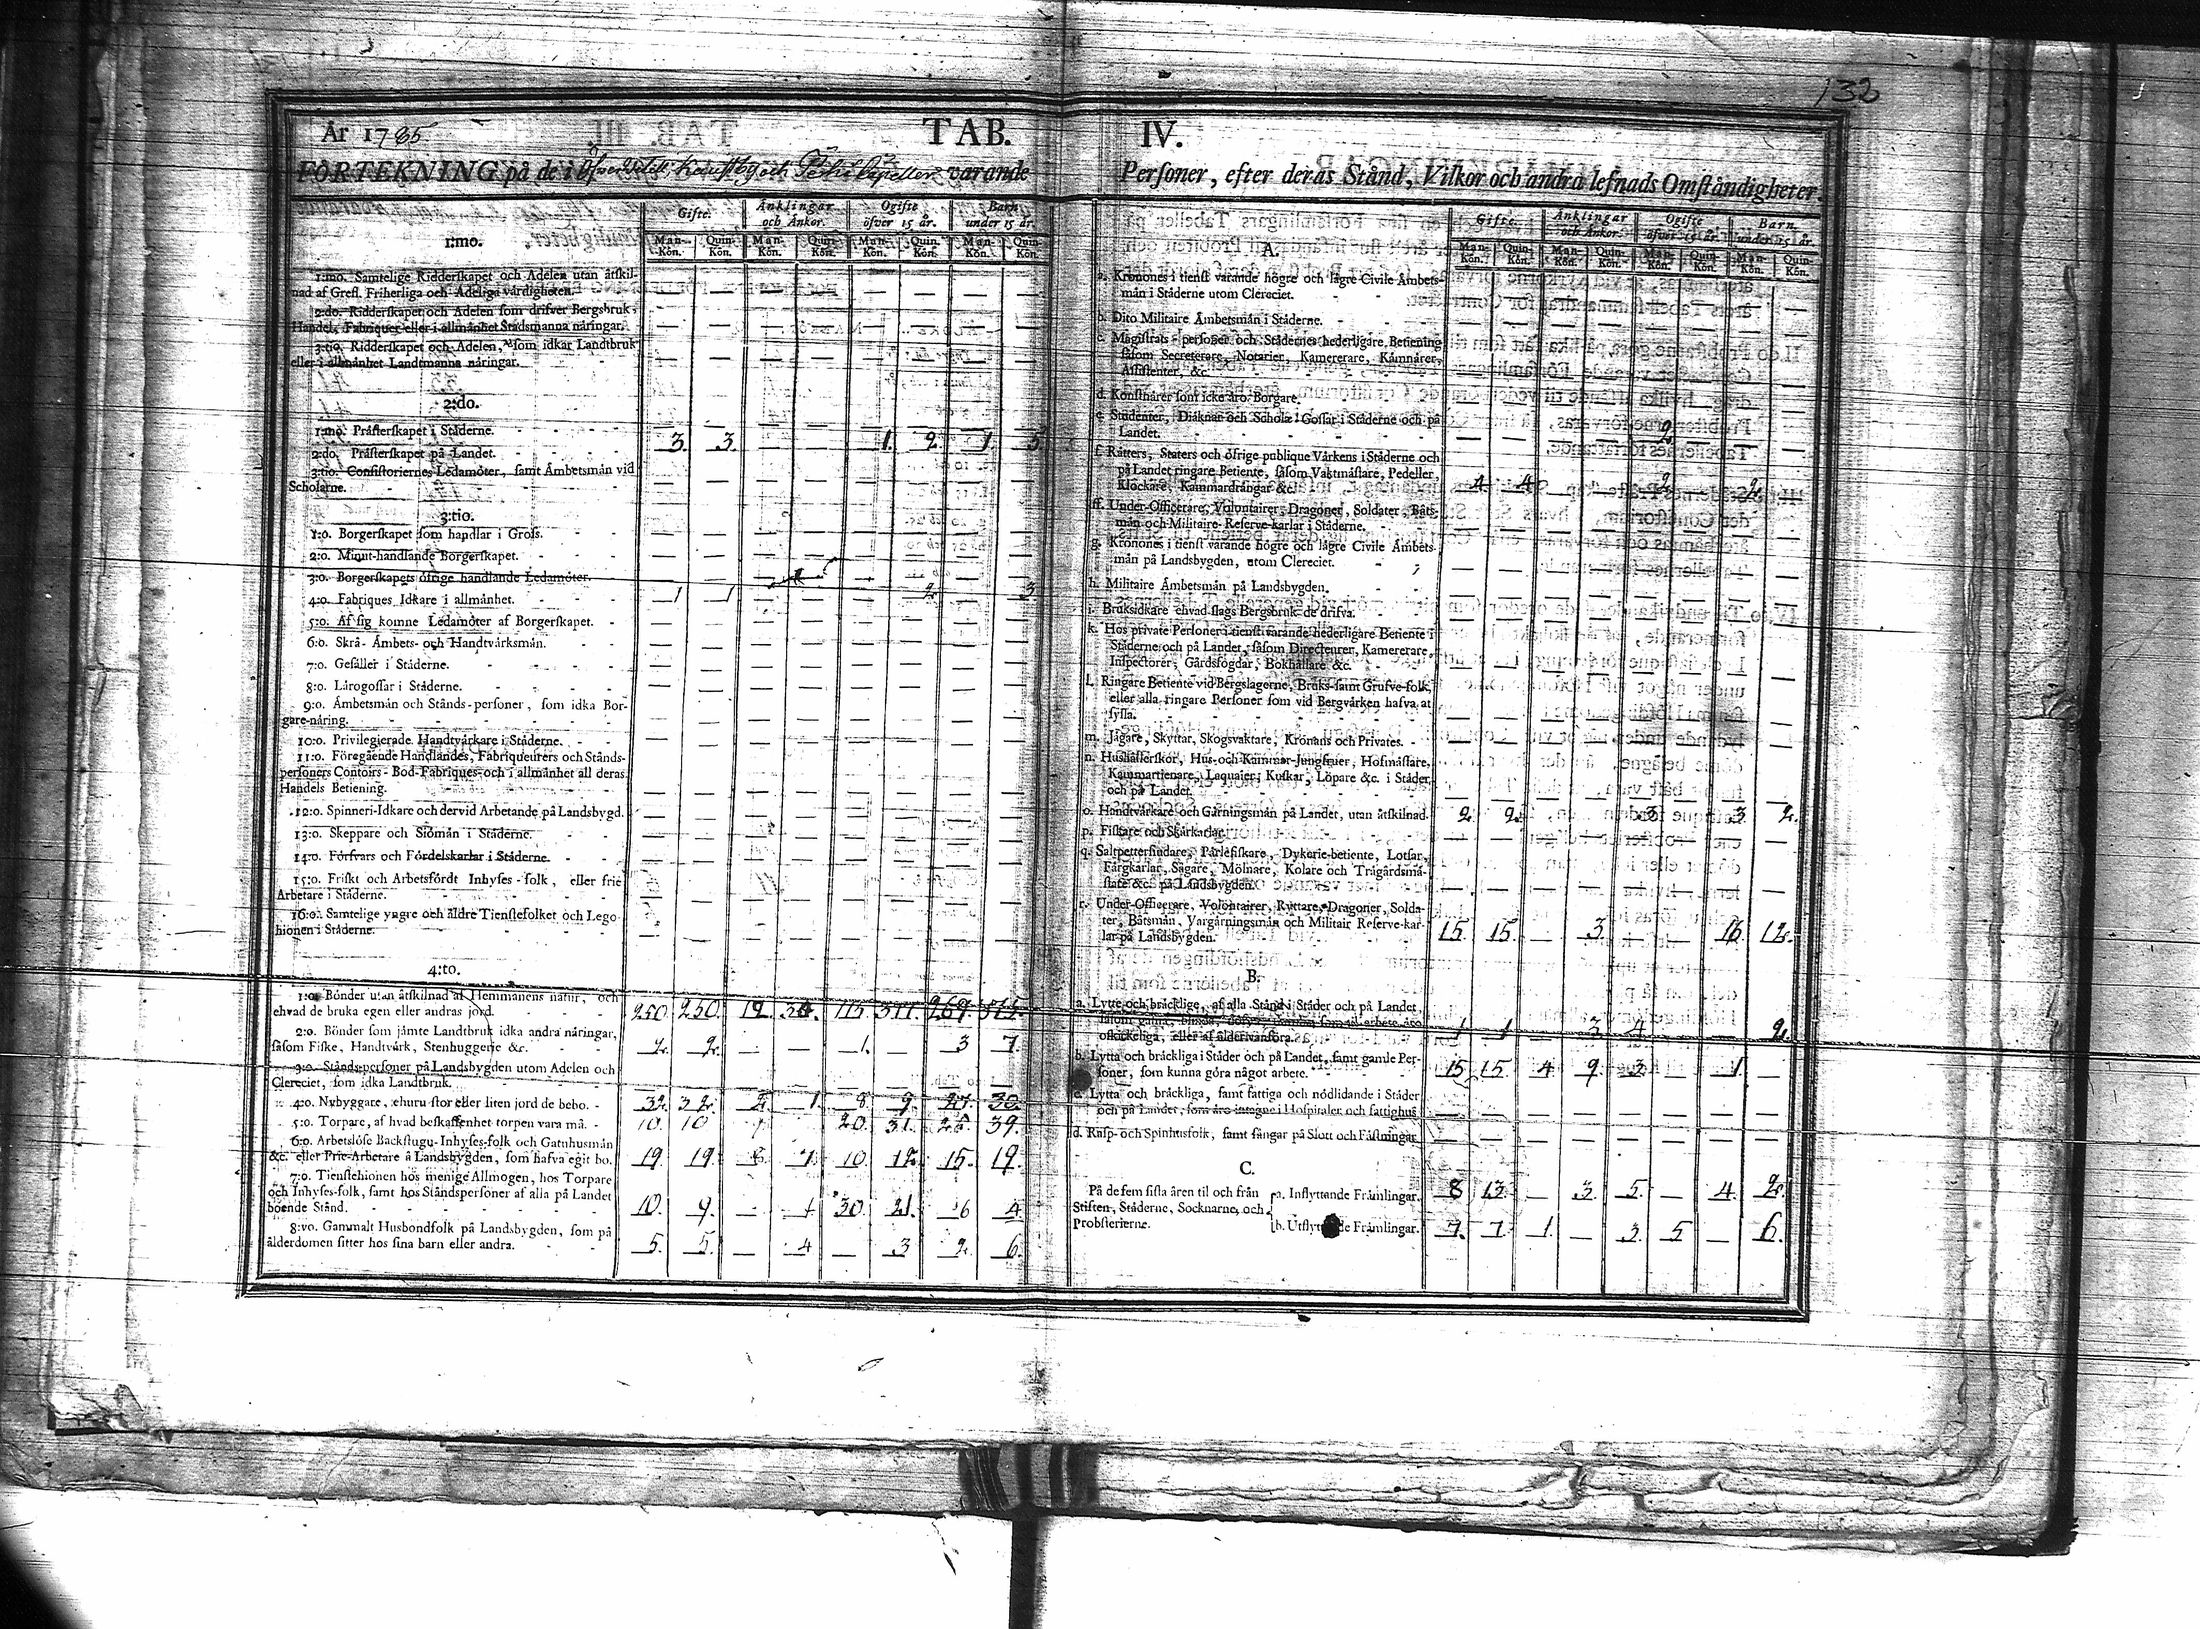 132
År 1785 TAB. IV.
FÖRTEKNING på de i och Capeller varande Personer, efter deras Stånd, Vilkor och andra lefnads Omståndigheter.
Gifte. Ånklingar och Ånkor. Ogifte öfver 15 år. Barn under 15 år.
Man-Kön. Quin-Kön. Man-Kön. Quin-Kön. Man-Kön. Quin-Kön. Man-Kön. Quin-Kön.
1:mo.
1:mo. Samtelige Ridderskapet och Adelen utan åtskil-
nad af Grefl. Friherliga och Adeliga vårdigheten. — — — — — — — —
2:do. Ridderskapet och Adelen som drifver Bergsbruk,
Handel, Fabriquer eller i allmånhet Stadsmanna nåringar. — — — — — — — —
3:tio. Ridderskapet och Adelen, som idkar Landtbruk
eller i allmånhet Landtmanna nåringar. — — — — — — — —
2:do.
1:mo. Pråsterskapet i Ståderne.
2:do. Pråsterskapet på Landet. 3. 3. 1. 2. 1. 5
3:tio. Consistoriernes Ledamöter, samt Åmbetsmån vid
Scholarne. — — — — — — — —
3:tio.
1:o. Borgerskapet som handlar i Gross. — — — — — — — —
2:o. Minut-handlande Borgerskapet. — — — — — — — —
3:o. Borgerskapets öfrige handlande Ledamöter. — — — — — — — —
4:o. Fabriques Idkare i allmånhet. 1 1 — — — 2. — 3
5:o. Af sig komne Ledamöter af Borgerskapet. — — — — — — — —
6:o. Skrå- Åmbets- och Handtvårksmån. — — — — — — — —
7:o. Gesåller i Ståderne. — — — — — — — —
8:o. Lårogossar i Ståderne. — — — — — — — —
9:o. Åmbetsmån och Stånds-personer, som idka Bor-
gare-nåring. — — — — — — — —
10:o. Privilegierade Handtvårkare i Ståderne. — — — — — — — —
11:o. Föregående Handlandes, Fabriqueurers och Stånds-
personers Contoirs- Bod-Fabriques- och i allmånhet all deras
Handels Betiening. — — — — — — — —
12:o. Spinneri-Idkare och dervid Arbetande på Landsbygd. — — — — — — — —
13:o. Skeppare och Siömån i Ståderne. — — — — — — — —
14:o. Förfvars och Fördelskarlar i Ståderne. — — — — — — — —
15:o. Friskt och Arbetsfördt Inhyses-folk, eller frie
Arbetare i Ståderne. — — — — — — — —
16:o. Samtelige yngre och åldre Tienstefolket och Lego-
hionen i Ståderne. — — — — — — — —
4:to.
1:o. Bönder utan åtskilnad af Hemmanens natur, och
ehvad de bruka egen eller andras jord. 250. 250. 12. 115.
2:o. Bönder som jåmte Landtbruk idka andra nåringar,
såsom Fiske, Handtvårk, Stenhuggerie &c. 2. 2. — — 1. — 3 7.
3:o. Stånds-personer på Landsbygden utom Adelen och
Clereciet, som idka Landtbruk. — — — — — — — —
4:o. Nybyggare, ehuru stor eller liten jord de bebo. 32. 32. 2. 1. 8. 9. 27. 30.
5:o. Torpare, af hvad beskaffenhet torpen vara må. 10. 10 20. 31. 39.
6:o. Arbetslöse Backstugu-Inhyses-folk och Gatuhusmån
&c. eller Frie-Arbetare å Landsbygden, som hafva egit bo. 19. 19. 10. 12. 15. 19.
7:o. Tienstehionen hos menige Allmogen, hos Torpare
och Inhyses-folk, samt hos Ståndspersoner af alla på Landet
boende Stånd. 10. 9. — 1 30. 21. 6 4.
8:vo. Gammalt Husbondfolk på Landsbygden, som på
ålderdomen sitter hos sina barn eller andra. 5. 5. — 4 — 3 2. 6.
Gifte. Ånklingar och Ånkor. Ogifte öfver 15 år. Barn under 15 år.
Man-Kön. Quin-Kön. Man-Kön. Quin-Kön. Man-Kön. Quin-Kön. Man-Kön. Quin-Kön.
A.
a. Kronones i tienst varande högre och lågre Civile Åmbets-
mån i Ståderne utom Clereciet. — — — — — — — —
b. Dito Militaire Åmbetsmån i Ståderne. — — — — — — — —
c. Magistrats-personer och Stådernes hederligare Betiening
såsom Secreterare, Notarier, Kamererare, Kåmnårer,
Assistenter, &c. — — — — — — — —
d. Konstnårer som icke åro Borgare. — — — — — — — —
e. Studenter, Diåknar och Scholæ-Gossar i Ståderne och på
Landet. — — — — 2. — — —
f. Råtters, Staters och öfrige publique Vårkens i Ståderne och
på Landet ringare Betiente, såsom Vaktmåstare, Pedeller,
Klockare, Kammardrångar &c. 4. 4. — — 2. — 2. —
ff. Under-Officerare, Volontairer, Dragoner, Soldater, Båts-
mån och Militaire-Reserve-karlar i Ståderne. — — — — — — — —
g. Kronones i tienst varande högre och lågre Civile Åmbets-
mån på Landsbygden, utom Clereciet. — — — — — — — —
h. Militaire Åmbetsmån på Landsbygden. — — — — — — — —
i. Bruksidkare ehvad slags Bergsbruk de drifva. — — — — — — — —
k. Hos private Personer i tienst varande hederligare Betiente i
Ståderne och på Landet, såsom Directeurer, Kamererare,
Inspectorer, Gårdsfogdar, Bokhållare &c. — — — — — — — —
l. Ringare Betiente vid Bergslagerne, Bruks-samt Grufve-folk,
eller alla ringare Personer som vid Bergvårken hafva at
syssla. — — — — — — — —
m. Jågare, Skyttar, Skogsvaktare, Kronans och Privates. — — — — — — — —
n. Hushållerskor, Hus- och Kammar-Jungfruer, Hofmåstare,
Kammartienare, Laquaier, Kuskar, Löpare &c. i Ståder
och på Landet. — — — — — — — —
o. Handtvårkare och Gårningsmån på Landet, utan åtskilnad. 2. 2. — — 3. — 3. 2.
p. Fiskare och Skårkarlar. — — — — — — — —
q. Saltpettersiudare, Pårlefiskare, Dykerie-betiente, Lotsar,
Fårgkarlar, Sågare, Mölnare, Kolare och Trågårdsmå-
stare &c. på Landsbygden. — — — — — — — —
r. Under-Officerare, Volontairer, Ryttare, Dragoner, Solda-
ter, Båtsmån, Vargårningsmån och Militair Reserve-kar-
lar på Landsbygden. 15. 15. — 3. — — 16 12.
B.
a. Lytte och bråcklige, af alla Stånd i Ståder och på Landet,
oskickeliga, eller af ålder vanföra. 1 1 3 4 2.
b. Lytta och bråckliga i Ståder och på Landet, samt gamle Per-
soner, som kunna göra något arbete. 15 15 4 9 3 — 1 —
c. Lytta och bråckliga, samt fattiga och nödlidande i Ståder
och på Landet, som åro intagne i Hospitaler och fattighus — — — — — — — —
d. Rasp- och Spinhusfolk, samt fångar på Slott och Fåstningar — — — — — — — —
C.
På de fem sista åren til och från
Stiften, Ståderne, Socknarne, och
Probsterierne.
a. Inflyttande Fråmlingar. 8 13 — 3. 5. — 4. 2.
b. Utflyttande Fråmlingar. 7. 7. 1. — 3. 5 — 6.